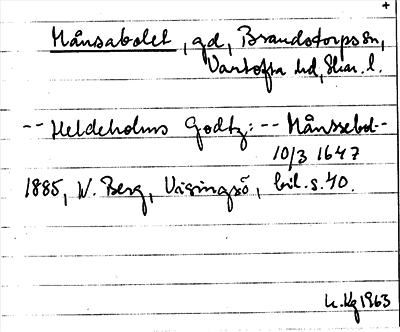 +
Månsabolet, gd, Brandstorps sn,
Vartofta hd, Skar. l.
-- Heldeholms Godtz: -- Månssebd --
10/3 1647
1885, W. Berg, Visingsö, bil. s. 40.
1963